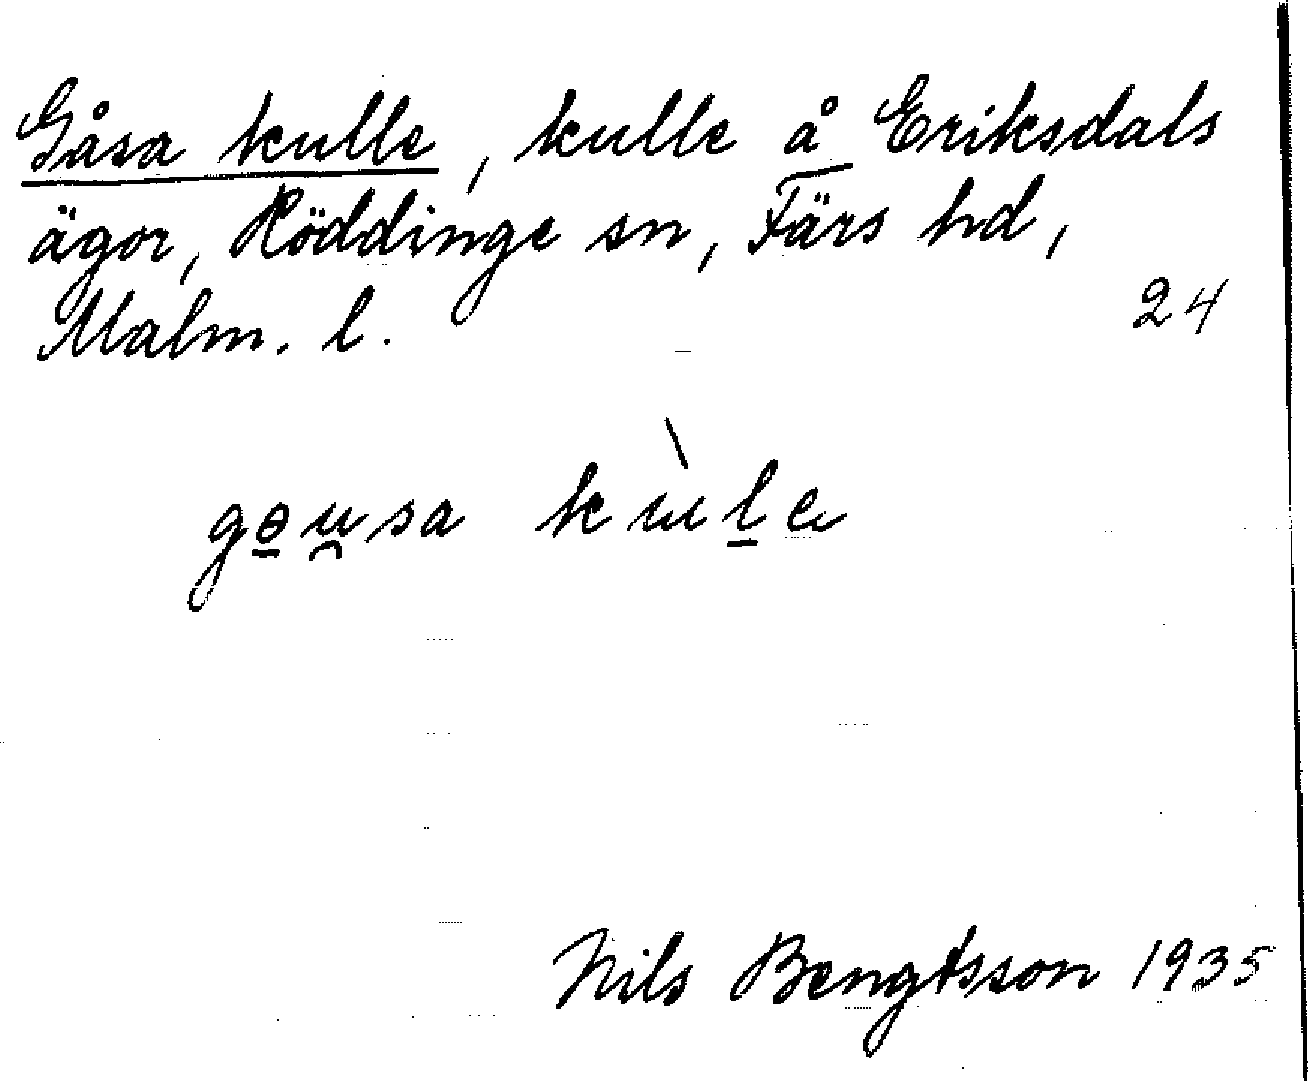 Gåsa kulle, kulle å Eriksdals
ägor, Röddinge sn, Färs hd,
Malm. l.
24
gousa kùle
Nils Bengtsson 1935